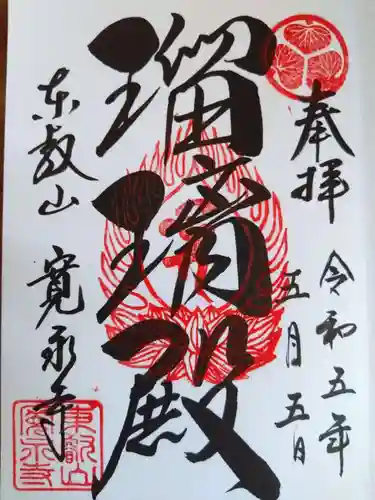 奉拝
令和五年
五月五日
瑠璃殿
東叡山
寛永寺
東叡山
寛永寺